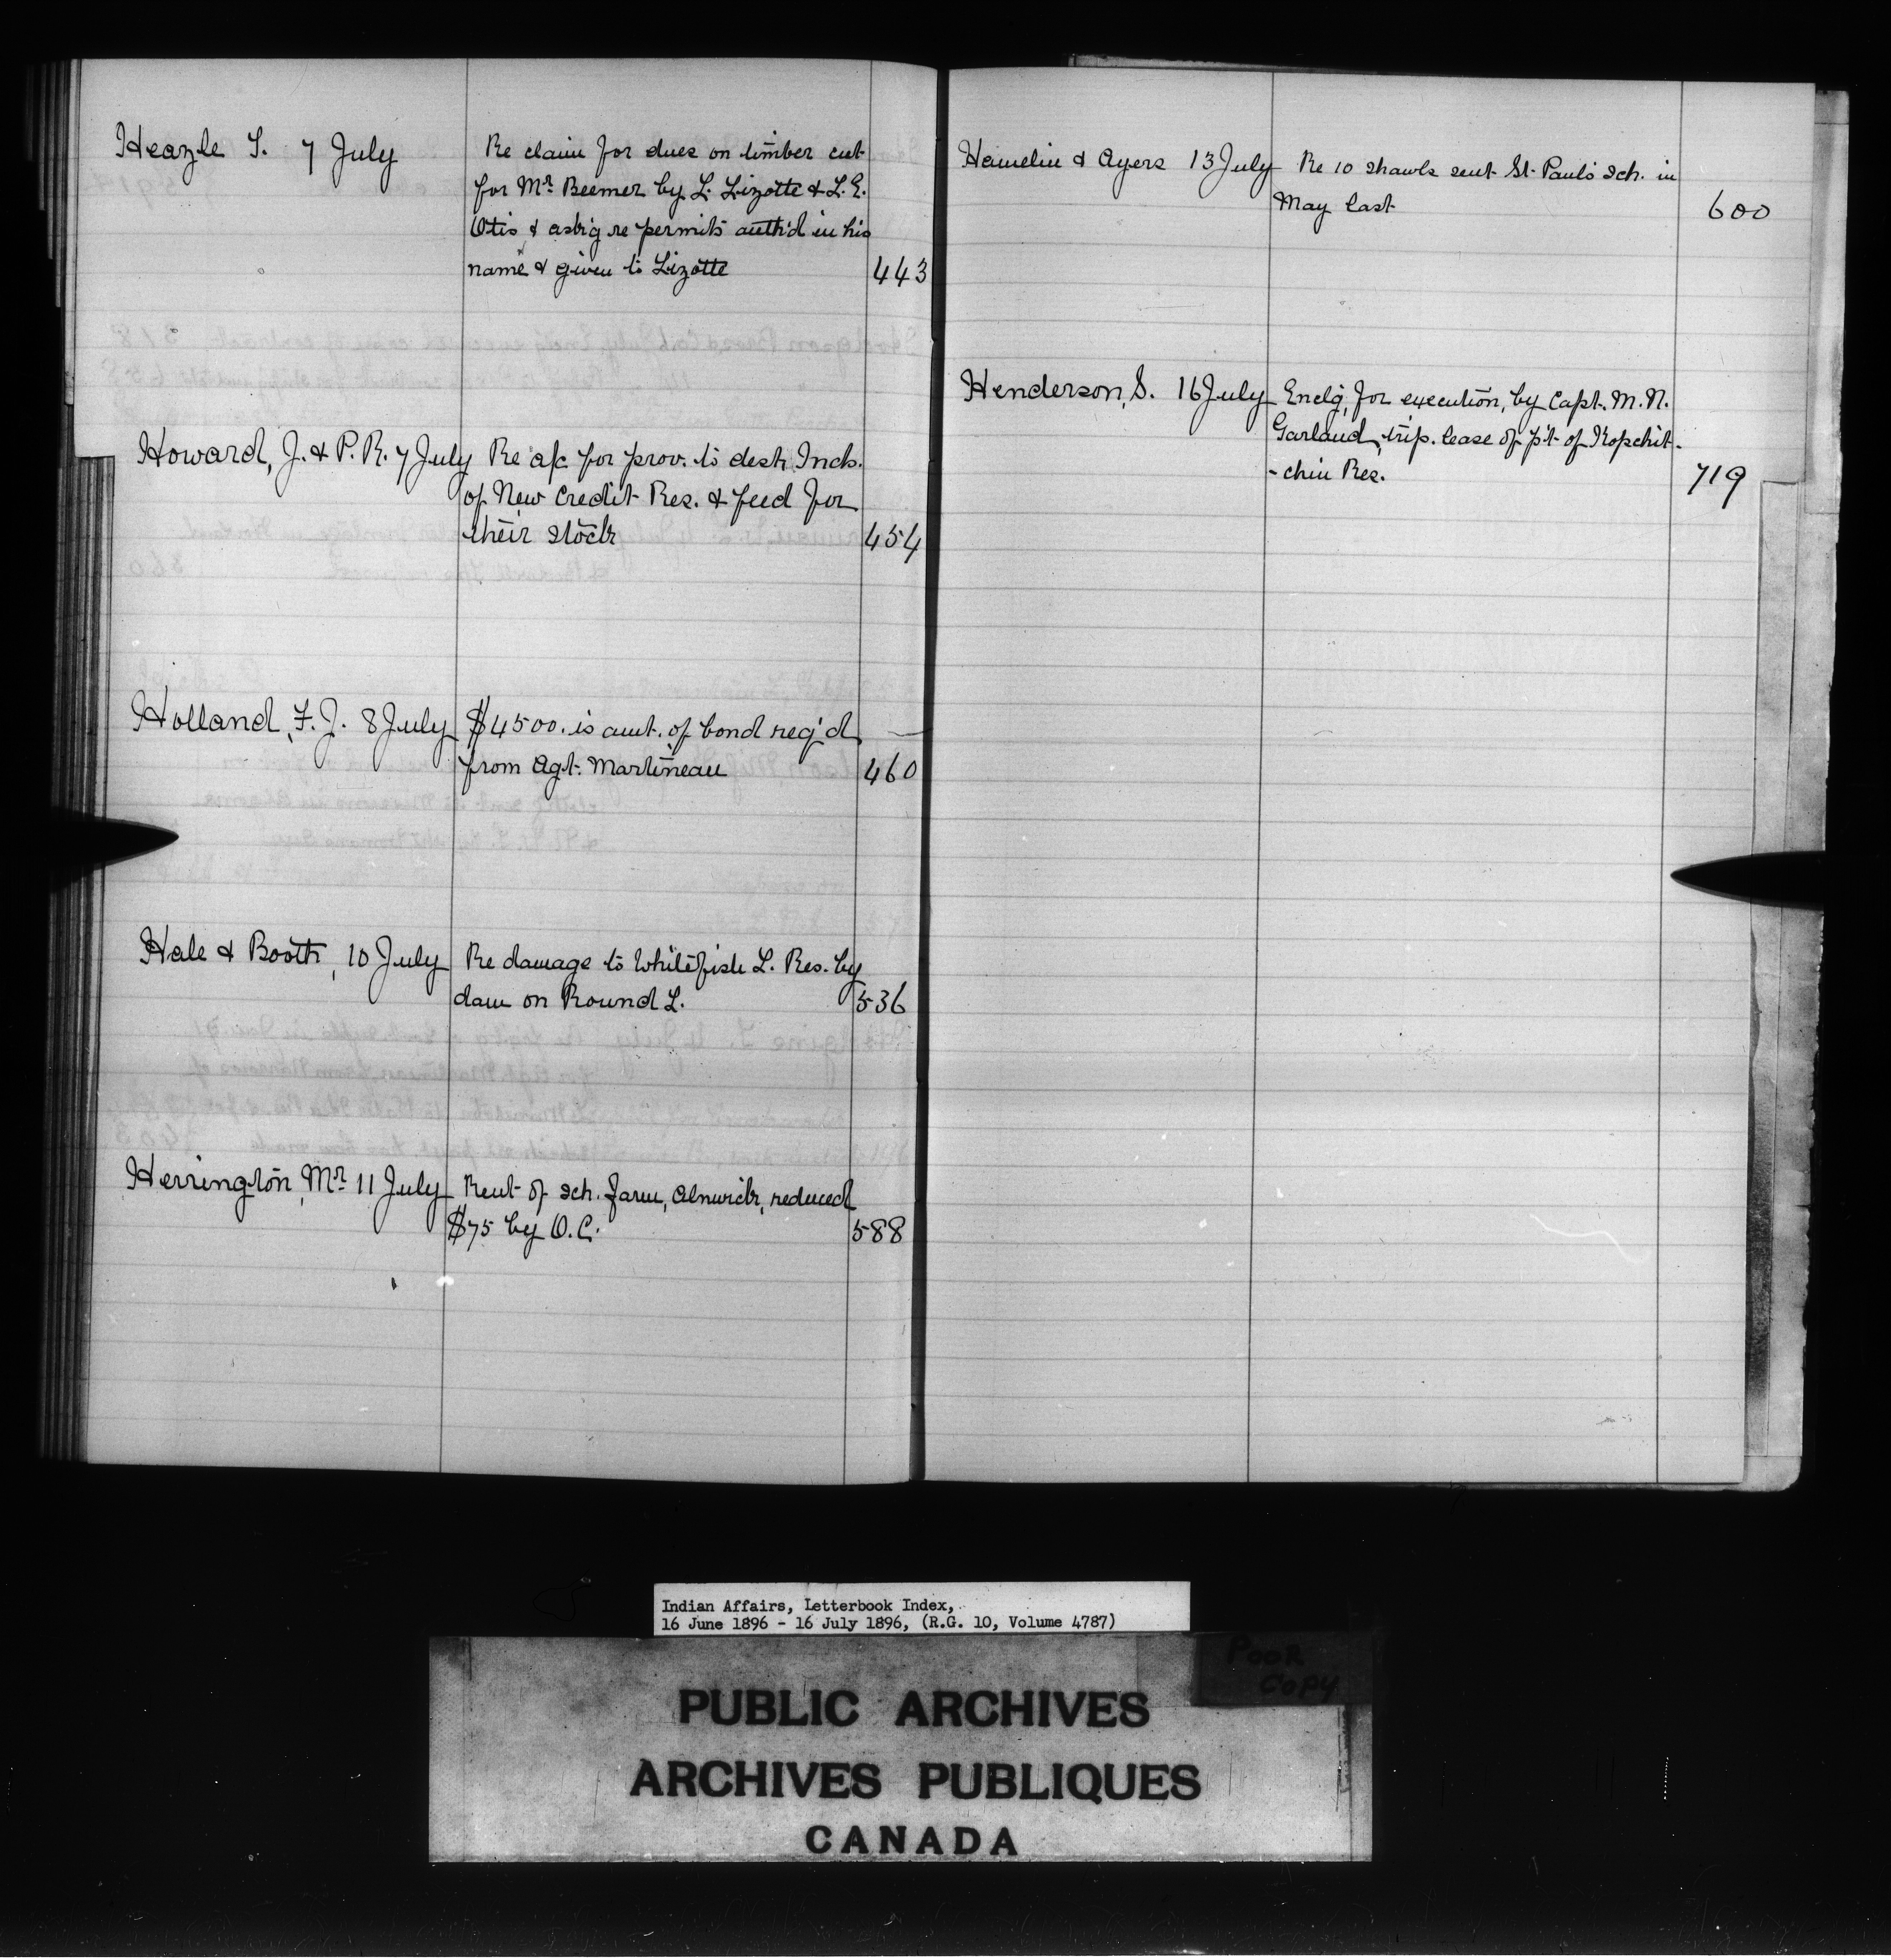 Heazle T. 7 July Re claim for dues on timber cut
for Mr. Beemer by L. Lizotte & L. E.
Otis & ask'g re permits auth'd in his
name & given to Lizotte 443
Howard, J. & P. R. 7 July Re a/c for prov. to dest. Inds.
of New Credit Res. & feed for
their stock 454
Holland, F. J. 8 July $4500. is amt. of bond req'd
from Agt. Martineau 460
Hale & Booth, 10 July Re damage to Whitefish L. Res. by
dam on Round L. 536
Herrington, Mr. 11 July Rent of sch. farm, Alnwick, reduced
$75 by O.C. 588
Hamelin & Ayers 13 July Re 10 shawls sent St. Paul's sch. in
May last 600
Henderson, S. 16 July Enclg, for execution, by Capt. M. N.
Garland, trip. lease of p't of Kopchit-
-chin Res. 719
Indian Affairs, Letterbook Index,
16 June 1896 - 16 July 1896, (R.G. 10, Volume 4787)
POOR
COPY
PUBLIC ARCHIVES
ARCHIVES PUBLIQUES
CANADA